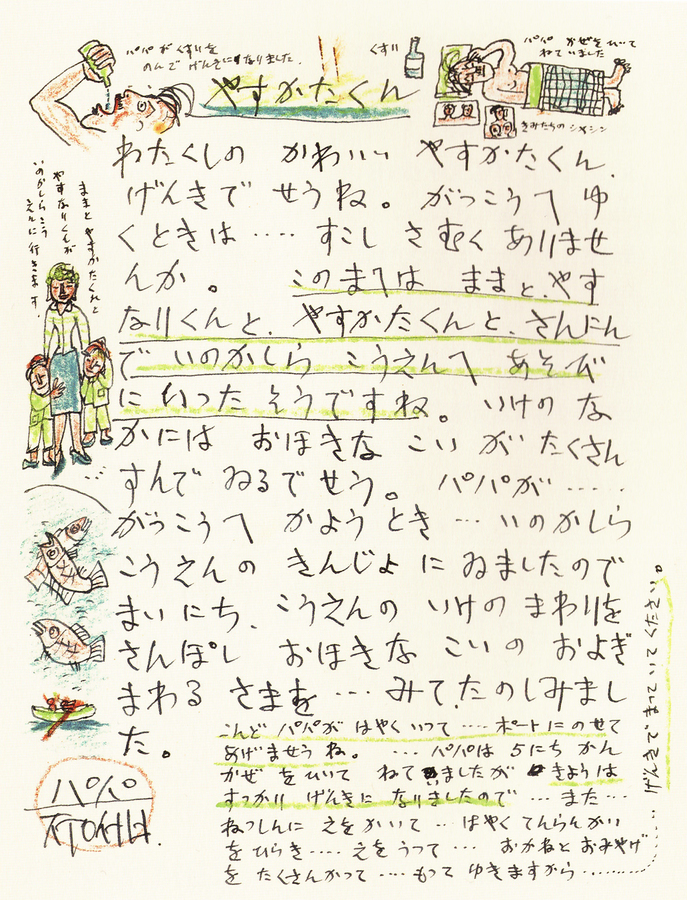 パパがくすりを
のんで げんきになりました.
くすり
パパ かぜをひいて
ねていました
きみたちのシャシン
やすかたくん
ままと やすかたくんと
やすなりくんが
いのかしらこう
えんに 行きます.
わたくしの かわいい やすかたくん.
げんきで せうね。 がっこうへ ゆ
くときは‥‥ すこし さむく ありませ
んか。 このまへは ままと、やす
なりくんと、やすかたくんと、さんにん
で いのかしら こうえんへ あそび
にいった そうですね。 いけの な
かには おほきな こい が たくさん
すんで ゐるでせう。 パパが‥‥
がっこうへ かよう とき … いのかしら
こうえんの きんじょ に ゐましたので
まいにち、こうえんの いけの まわりを
さんぽし おほきな こいの およぎ
まわる さまを … みて、たのしみまし
た。
こんど パパが はやく いって ‥‥ ボートに のせて
あげませうね。 ‥‥ パパは 5にち かん
かぜ を ひいて ねて ましたが きようは
すっかり げんきに なりましたので … また …
ねっしんに えをかいて … はやく てんらんかい
をひらき‥‥ えをうって … おかねと おみやげ
を たくさんかって ‥‥ もって ゆきますから‥‥‥‥
げんきで、まっていてください。
パパ